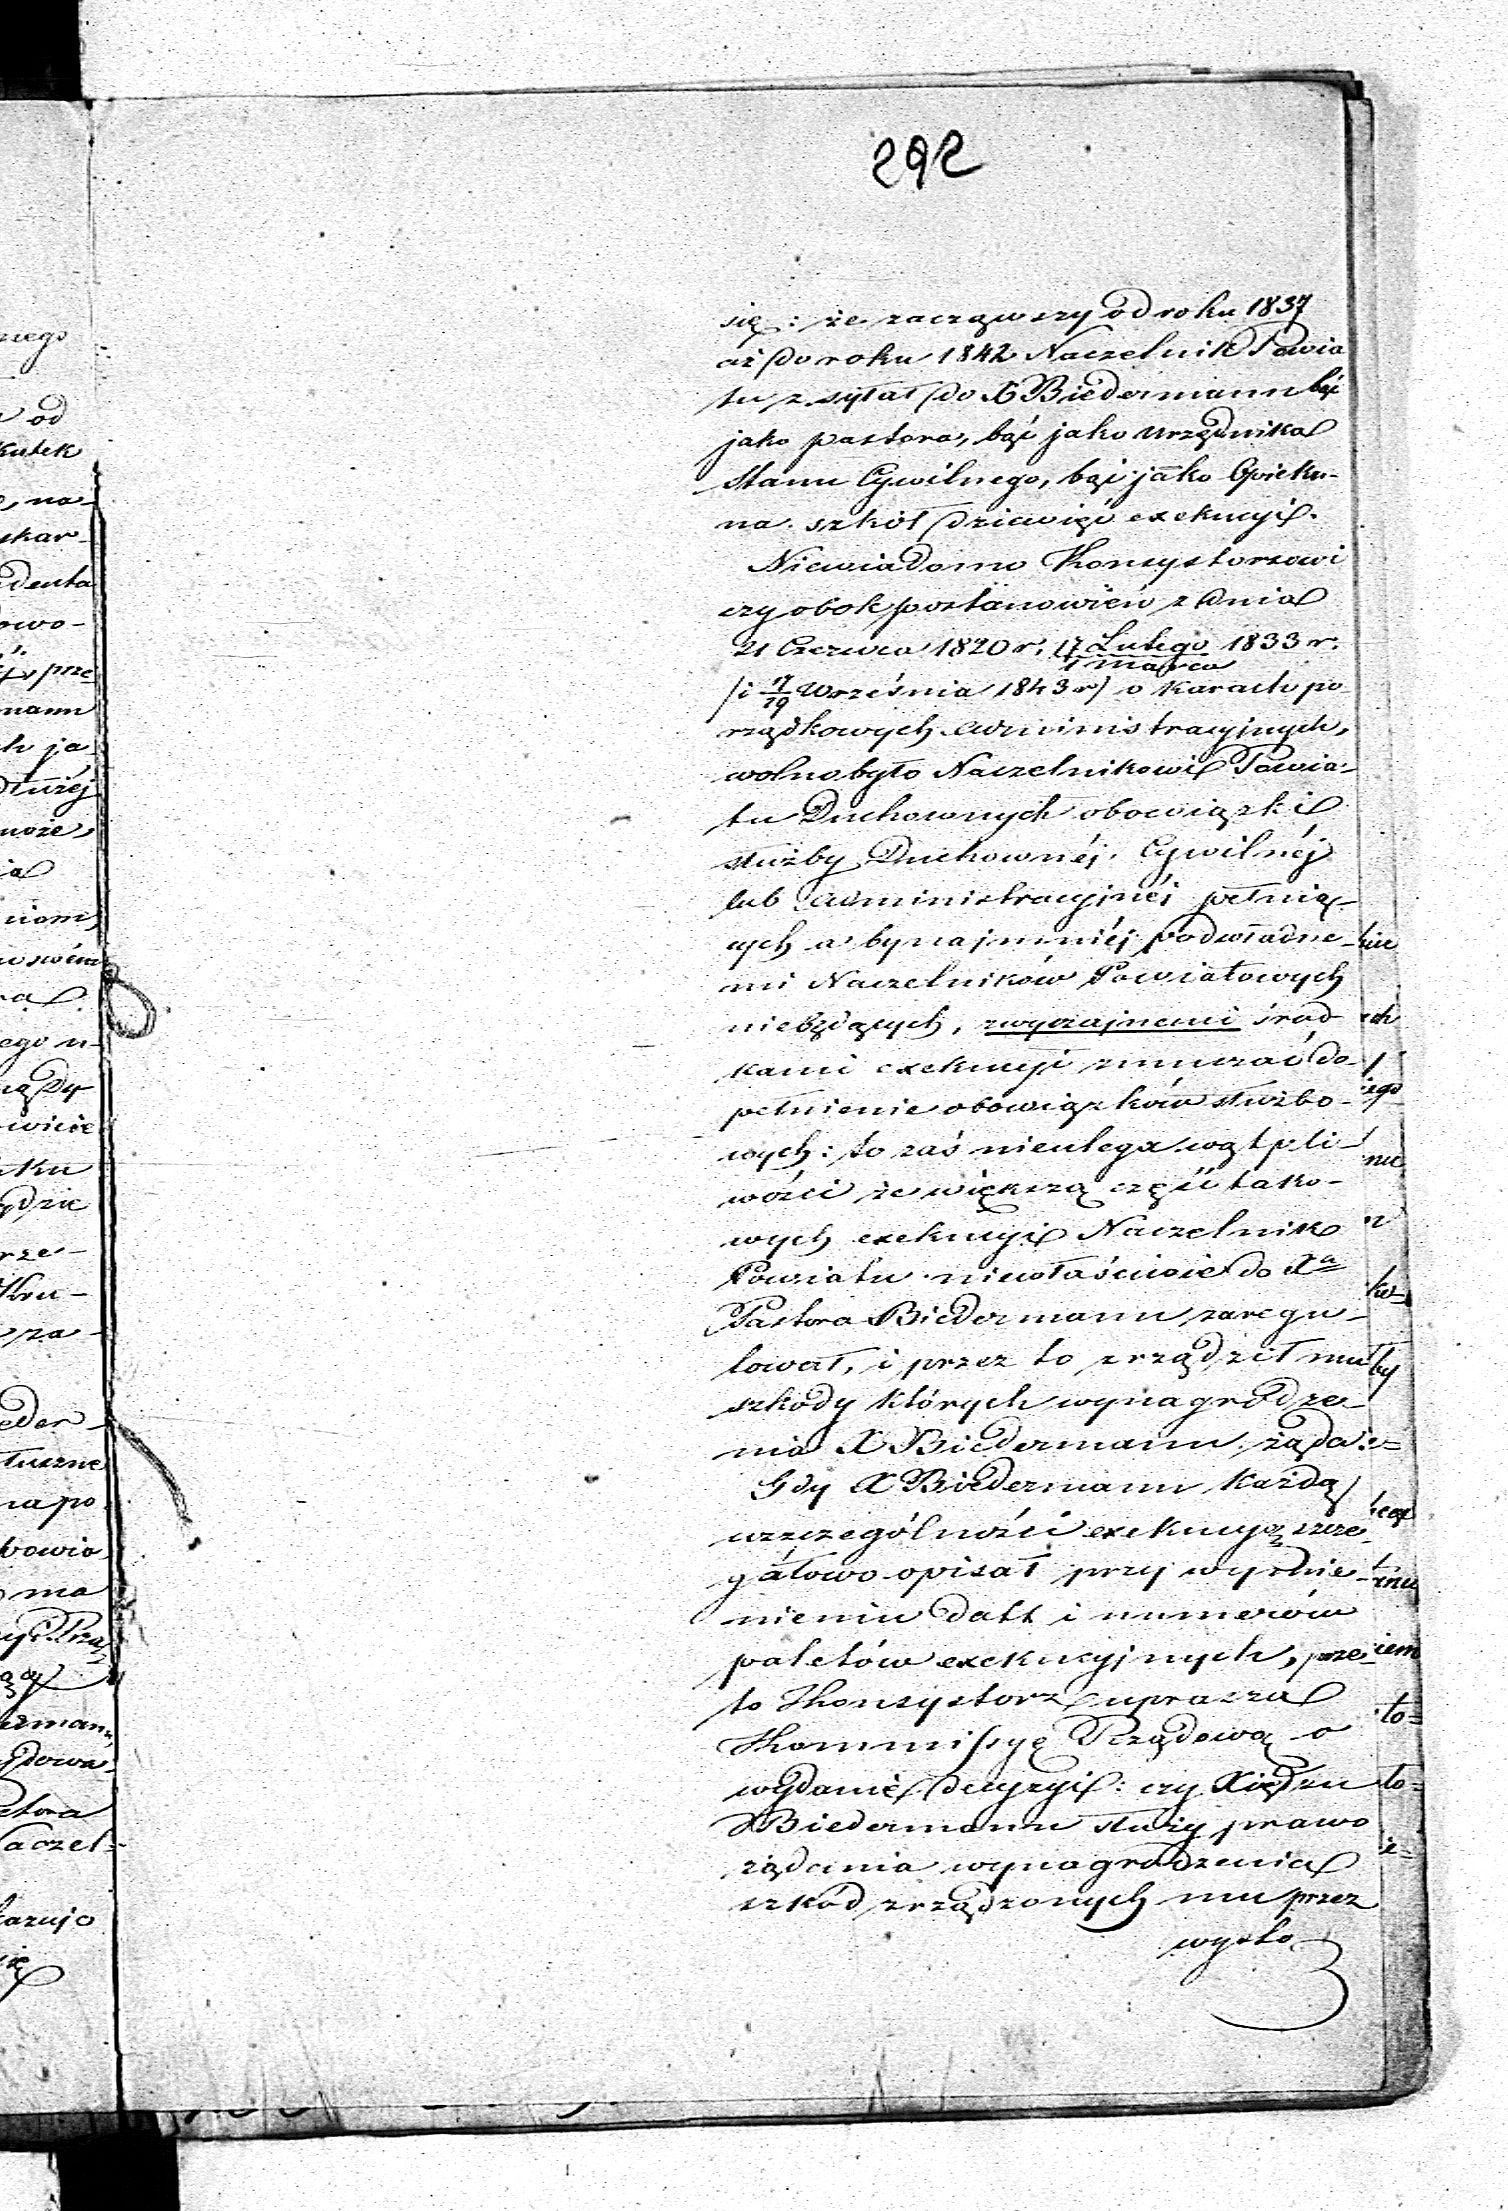 292
się: że zacząwszy od roku 1837
aż do roku 1842 Naczelnik Powia
tu zsyłał do X Biedermann bąć
jako pastora, bąć jako urzędnika
stanu Cywilnego, bąć jako Opieku-
na szkół dziewięć exekucyi.
Niewiadomo Konsystorzowi
czy obok postanowień z dnia
21 Czerwca 1820 r. 17 Lutego 1833 r.
1 marca
/i 17/29 Września 1843 r/ o karach po
rządkowych administracyjnych,
wolno było Naczelnikowi Powia-
tu Duchownych obowiązki
służby Duchownéj, Cywilnéj
lub administracyjnéj pełnią-
cych a bynajmniéj podwładne-
mi Naczelników Powiatowych
niebędących, zwyczajnemi środ-
kami exekucyi zmuszać do-
pełnienie obowiązków służbo-
wych: to zaś nieulega wątpli-
wości że większą część tako-
wych exekucyi Naczelnik
Powiatu niewłaściwie do Xa
Pastora Biedermann zaregu-
lował, i przez to zrządził mu
szkody których wynagrodze-
nia X Biedermann żąda.
Gdy X Biedermann każdą
wszczególności exekucyą szcze
gółowo opisał przy wymie-
nieniu datt i numerów
paletów exekucyjnych, prze-
to Konsystorz uprasza
Kommissyę Rządową o
wydanie decyzyi: czy Xiędzu
Biedermann służy prawo
żądania wynagrodzenia
szkód zrządzonych mu przez
wysła